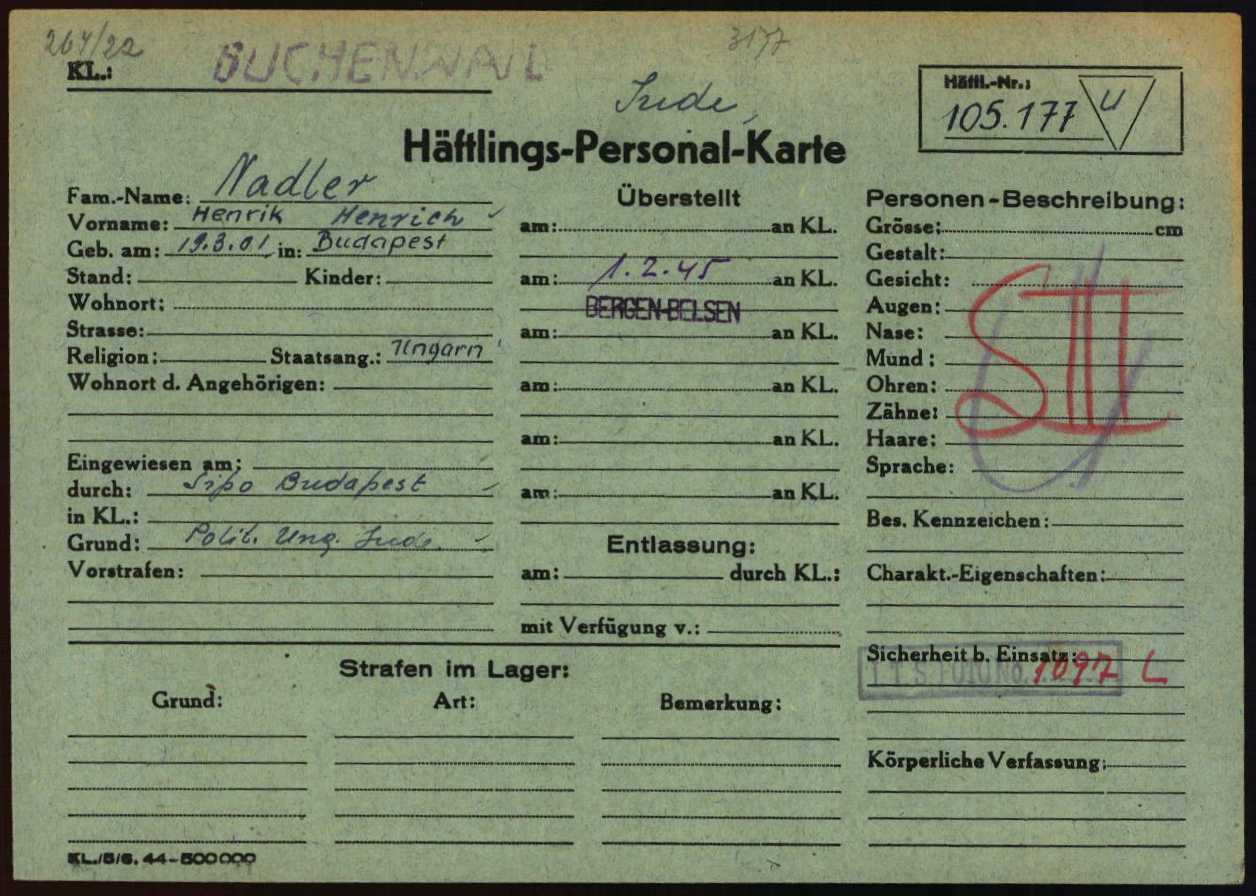 264/22
3177
KL.: BUCHENWALD
Jude,
Häftl.-Nr.:
105.177 U
Häftlings-Personal-Karte
Fam.-Name: Nadler
Vorname: Henrik Henrich
Geb. am: 19.3.01 in: Budapest
Stand: Kinder:
Wohnort:
Strasse:
Religion: Staatsang.: Ungarn
Wohnort d. Angehörigen:
Eingewiesen am:
durch: Sipo Budapest
in KL.:
Grund: Polit. Ung. Jude
Vorstrafen:
Überstellt
am: an KL.
am: 1.2.45 an KL.
BERGEN-BELSEN
am: an KL.
am: an KL.
am: an KL.
am: an KL.
Entlassung:
am: durch KL.:
mit Verfügung v.:
Personen-Beschreibung:
Grösse: cm
Gestalt:
Gesicht:
Augen:
Nase:
Mund:
Ohren:
Zähne:
Haare:
Sprache:
SIII
Bes. Kennzeichen:
Charakt.-Eigenschaften:
Sicherheit b. Einsatz:
I.T.S. FOTO No. 1097 L
Körperliche Verfassung:
Strafen im Lager:
Grund: Art: Bemerkung:
KL./5/6. 44-500000